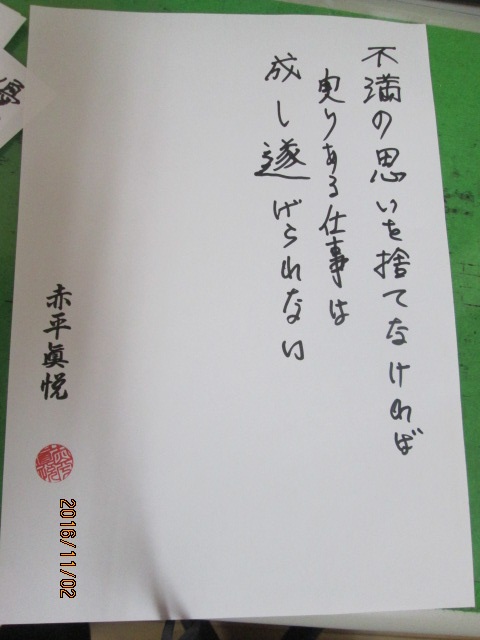 不満の思いを捨てなければ
実りある仕事は
成し遂げられない
赤平眞悦
2016/11/02